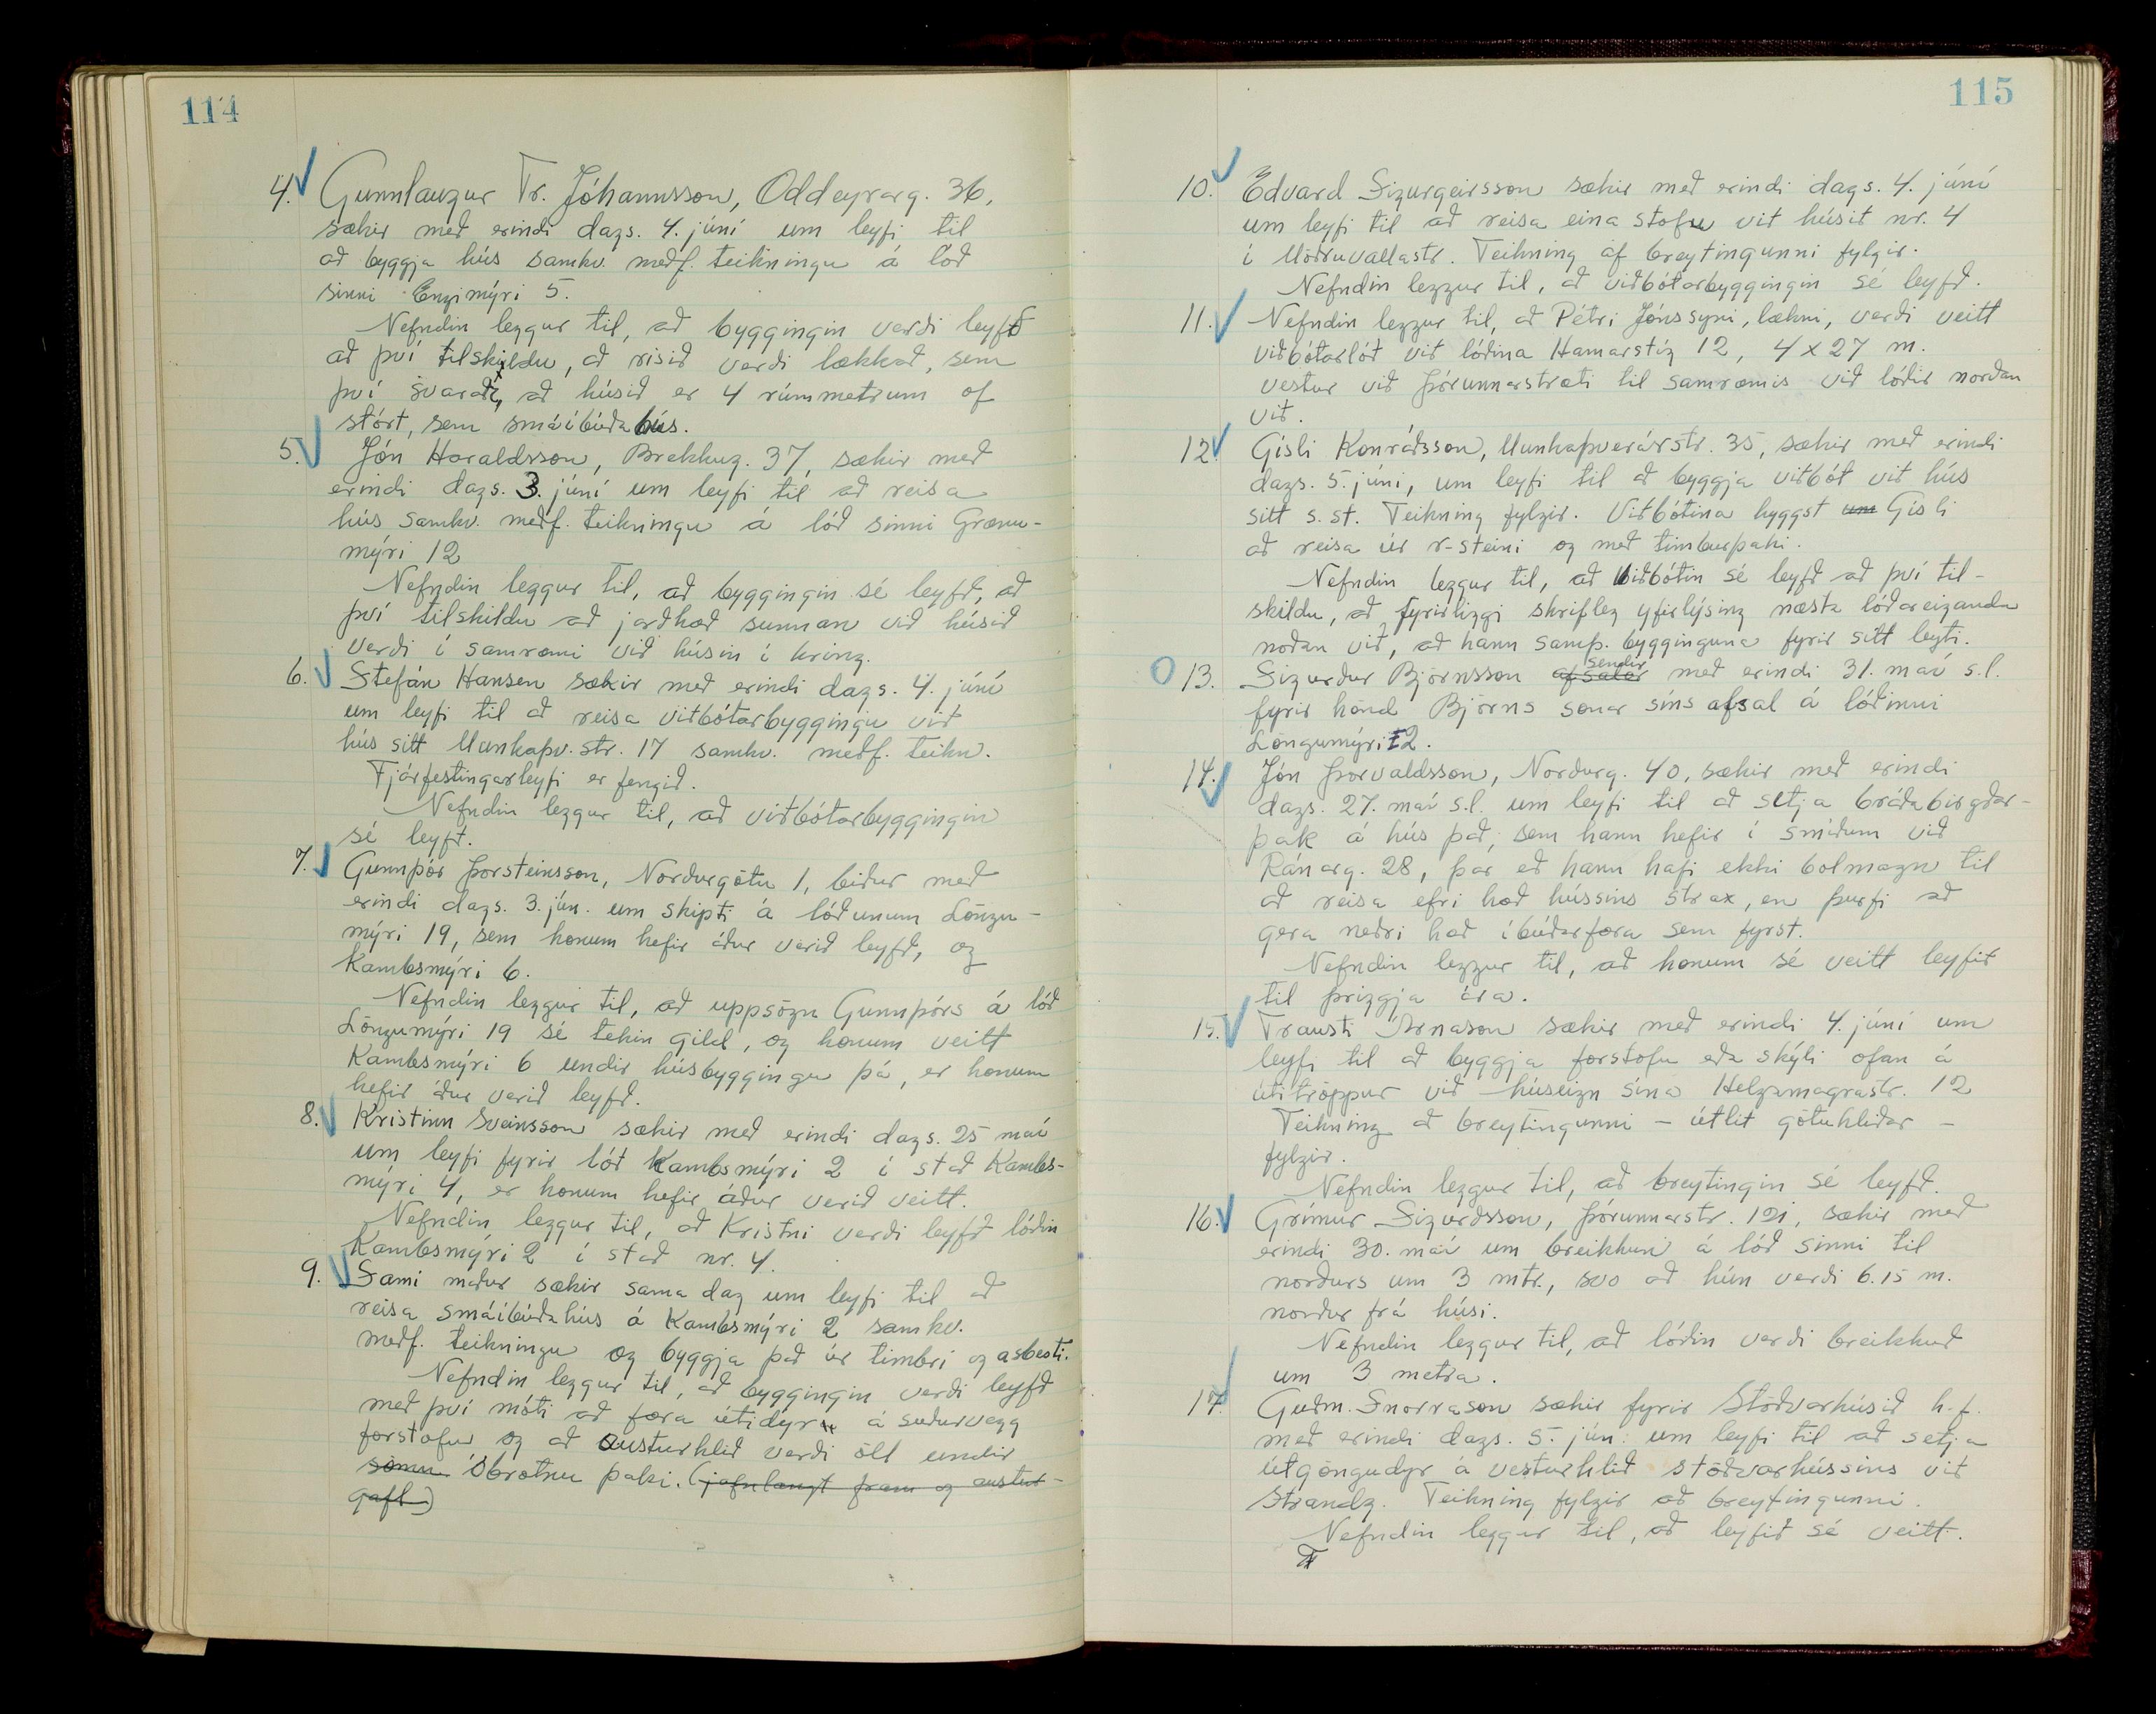 114
4. Gunnlaugur Tr. Jóhannsson, Oddeyrarg. 36,
sækir með erindi dags. 4. júní um leyfi til
að byggja hús samkv. meðf. teikningu á lóð
sinni Engimýri 5.
Nefndin leggur til, að byggingin verði leyfð
að því tilskildu, að risið verði lækkað, sem
því svarar, að húsið er 4 rúmmetrum of
stórt, sem smáíbúðahús.
5. Jón Haraldsson, Brekkug. 37, sækir með
erindi dags. 3. júní um leyfi til að reisa
hús samkv. meðf. teikningu á lóð sinni Grænu-
mýri 12
Nefndin leggur til, að byggingin sé leyfð, að
því tilskildu að jarðhæð sunnan við húsið
verði í samræmi við húsin í kring.
6. Stefán Hansen sækir með erindi dags. 4. júní
um leyfi til að reisa viðbótarbyggingu við
hús sitt Munkaþv.str. 17 samkv. meðf. teikn.
Fjárfestingarleyfi er fengið.
Nefndin leggur til, að viðbótarbyggingin
sé leyfð.
7. Gunnþór Þorsteinsson, Norðurgötu 1, biður með
erindi dags. 3. jún. um skipti á lóðunum Löngu-
mýri 19, sem honum hefir áður verið leyfð, og
Kambsmýri 6.
Nefndin leggur til, að uppsögn Gunnþórs á lóð
Löngumýri 19 sé tekin gild, og honum veitt
Kambsmýri 6 undir húsbyggingu þá, er honum
hefir áður verið leyfð.
8. Kristinn Sveinsson sækir með erindi dags. 25 maí
um leyfi fyrir lóð Kambsmýri 2 í stað Kambs-
mýri 4, er honum hefir áður verið veitt.
Nefndin leggur til, að Kristni verði leyfð lóðin
Kambsmýri 2 í stað nr. 4.
9. Sami maður sækir sama dag um leyfi til að
reisa smáíbúðahús á Kambsmýri 2 samkv.
meðf. teikningu og byggja það úr timbri og asbesti.
Nefndin leggur til, að byggingin verði leyfð
með því móti að færa útidyr á suðurvegg
forstofu og að austurhlið verði öll undir
sömu óbrotnu þaki. (jafnlangt fram og austur-
gafl)
115
10. Edvard Sigurgeirsson sækir með erindi dags. 4. júní
um leyfi til að reisa eina stofu við húsið nr. 4
í Möðruvallastr. Teikning af breytingunni fylgir.
Nefndin leggur til, að viðbótarbyggingin sé leyfð.
11. Nefndin leggur til, að Pétri Jónssyni, lækni, verði veitt
viðbótarlóð við lóðina Hamarstíg 12, 4 x 27 m.
vestur við Þórunnarstræti til samræmis við lóðir norðan
við.
12. Gísli Konráðsson, Munkaþverárstr. 35, sækir með erindi
dags. 5. júní, um leyfi til að byggja viðbót við hús
sitt s. st. Teikning fylgir. Viðbótina hyggst um Gísli
að reisa úr r-steini og með timburþaki.
Nefndin leggur til, að viðbótin sé leyfð að því til-
skildu, að fyrirliggi skrifleg yfirlýsing næsta lóðareiganda
noðan við, að hann samþ. bygginguna fyrir sitt leyti.
13. Sigurður Björnsson afsalar sendir með erindi 31. maí s.l.
fyrir hönd Björns sonar síns afsal á lóðinni
Löngumýri 12.
14. Jón Þorvaldsson, Norðurg. 40, sækir með erindi
dags. 27. maí s.l. um leyfi til að setja bráðabirgðar-
þak á hús það, sem hann hefir í smíðum við
Ránarg. 28, þar eð hann hafi ekki bolmagn til
að reisa efri hæð hússins strax, en þurfi að
gera neðri hæð íbúðarfæra sem fyrst.
Nefndin leggur til, að honum sé veitt leyfið
til þriggja ára.
15. Trausti Árnason sækir með erindi 4. júní um
leyfi til að byggja forstofu eða skýli ofan á
útitröppur við húseign sína Helgamagrastr. 12
Teikning að breytingunni – útlit götuhliðar –
fylgir.
Nefndin leggur til, að breytingin sé leyfð.
16. Grímur Sigurðsson, Þórunnarstr. 121, sækir með
erindi 30. maí um breikkun á lóð sinni til
norðurs um 3 mtr., svo að hún verði 6.15 m.
norður frá húsi.
Nefndin leggur til, að lóðin verði breikkuð
um 3 metra.
17. Guðm. Snorrason sækir fyrir Stöðvarhúsið h.f.
með erindi dags. 5. jún. um leyfi til að setja
útgöngudyr á vesturhlið stöðvarhússins við
Strandg. Teikning fylgir að breytingunni.
Nefndin leggur til, að leyfið sé veitt.